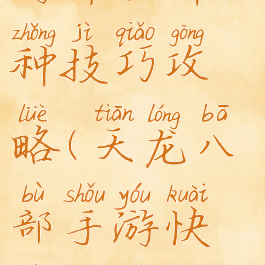 zhǒng jì qiǎo gōng
种技巧攻
lüè tiān lóng bā
略(天龙八
bù shǒu yóu kuài
部手游快